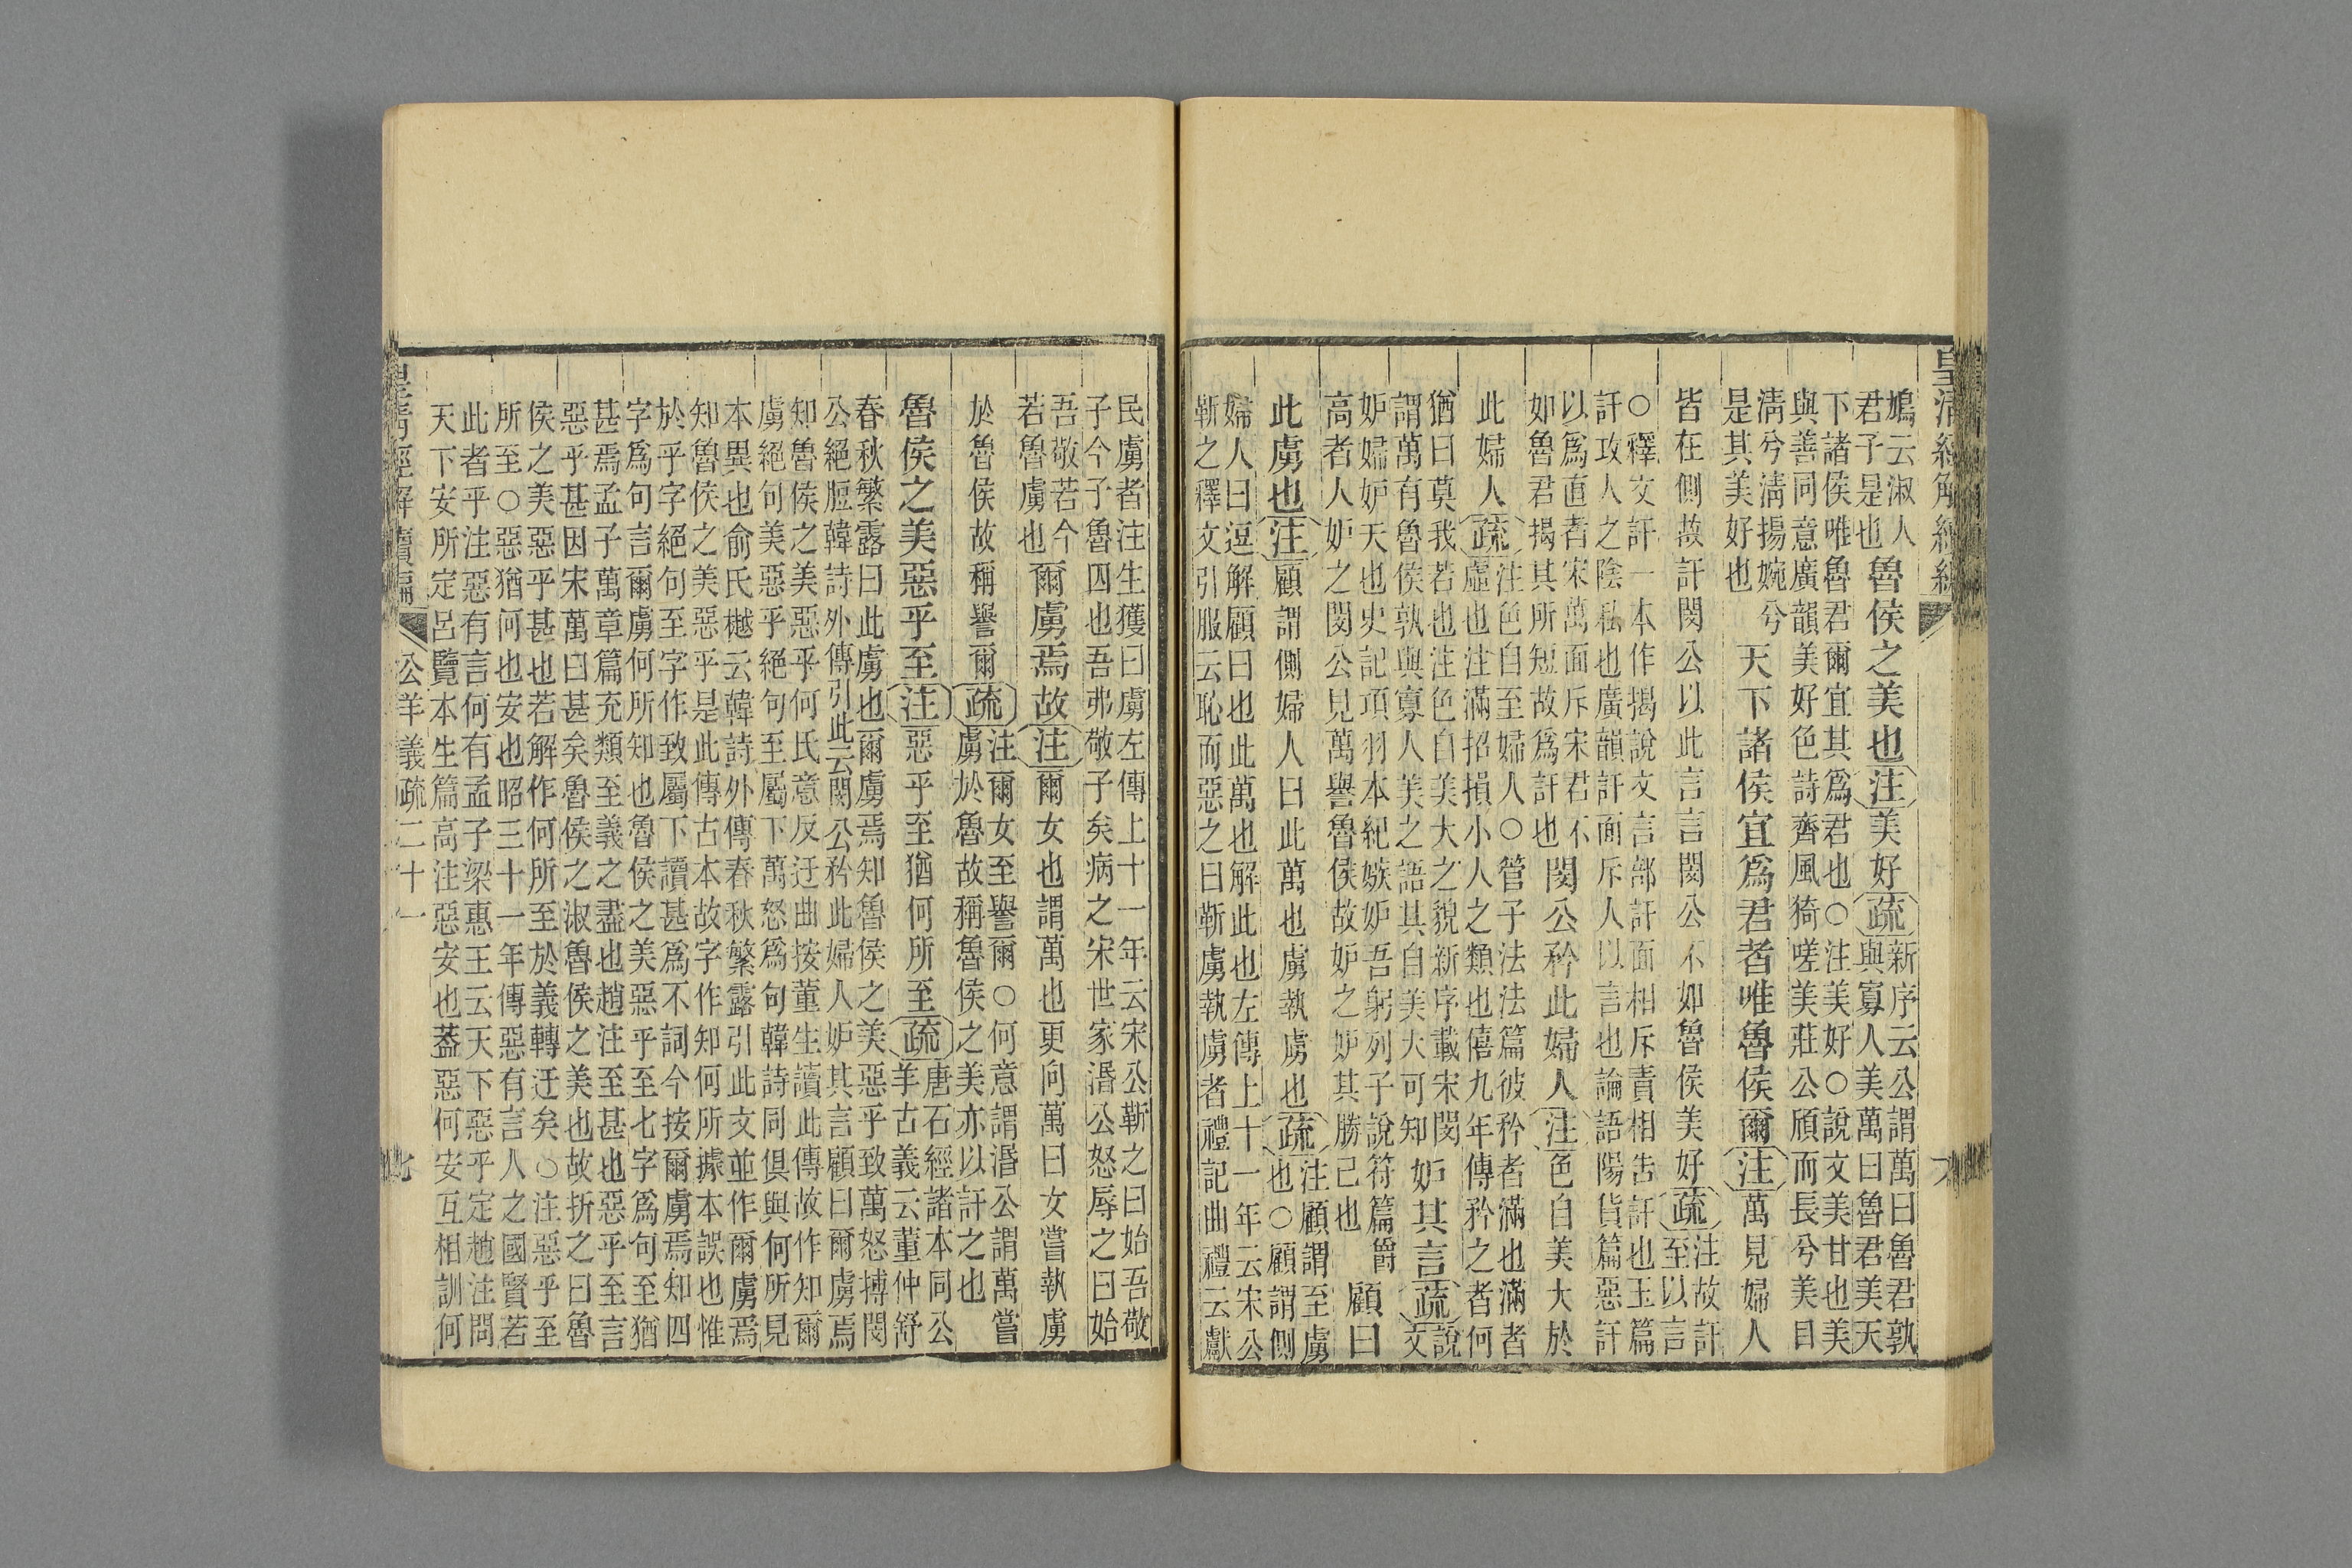 皇淸經解續編
鳩云淑人
君子是也
魯侯之美也
注
美好
疏
新序云公謂萬曰魯君孰
與寡人美萬曰魯君美天
下諸侯唯魯君爾宜其爲君也○注美好○說文美甘也美
與善同意廣韻美好色詩齊風猗嗟美莊公頎而長兮美目
淸兮淸揚婉兮
是其美好也
天下諸侯宜爲君者唯魯侯爾
注
萬見婦人
皆在側故訐閔公以此言言閔公不如魯侯美好
疏
注故訐
至以言
○釋文訐一本作揭說文言部訐面相斥責相告訐也玉篇
訐攻人之陰私也廣韻訐面斥人以言也論語陽貨篇惡訐
以爲直者宋萬面斥宋君不
如魯君揭其所短故爲訐也
閔公矜此婦人
注
色自美大於
此婦人
疏
注色自至婦人○管子法法篇彼矜者滿也滿者
虛也注滿招損小人之類也僖九年傳矜之者何
猶曰莫我若也注色自美大之貌新序載宋閔
謂萬有魯侯孰與寡人美之語其自美大可知
妒其言
疏
說
文
妒婦妒夫也史記項羽本紀嫉妒吾躬列子說符篇爵
高者人妒之閔公見萬譽魯侯故妒之妒其勝己也
顧曰
此虜也
注
顧謂側婦人曰此萬也虜執虜也
疏
注顧謂至虜
也○顧謂側
婦人曰逗解顧曰也此萬也解此也左傳上十一年云宋公
靳之釋文引服云恥而惡之曰靳虜執虜者禮記曲禮云獻
民虜者注生獲曰虜左傳上十一年云宋公靳之曰始吾敬
子今子魯囚也吾弗敬子矣病之宋世家湣公怒辱之曰始
吾敬若今
若魯虜也
爾虜焉故
注
爾女也謂萬也更向萬曰女嘗執虜
於魯侯故稱譽爾
疏
注爾女至譽爾○何意謂湣公謂萬嘗
虜於魯故稱魯侯之美亦以訐之也
魯侯之美惡乎至
注
惡乎至猶何所至
疏
唐石經諸本同公
羊古義云董仲舒
春秋繁露曰此虜也爾虜焉知魯侯之美惡乎致萬怒搏閔
公絕脰韓詩外傳引此云閔公矜此婦人妒其言顧曰爾虜焉
知魯侯之美惡乎何氏意反迂曲按董生讀此傳故作知爾
虜絕句美惡乎絕句至屬下萬怒爲句韓詩同俱與何所見
本異也俞氏樾云韓詩外傳春秋繁露引此文並作爾虜焉
知魯侯之美惡乎是此傳古本故字作知何所據本誤也惟
於乎字絕句至字作致屬下讀甚爲不詞今按爾虜焉知四
字爲句言爾虜何所知也魯侯之美惡乎至七字爲句至猶
甚焉孟子萬章篇充類至義之盡也趙注至甚也惡乎至言
惡乎甚因宋萬曰甚矣魯侯之淑魯侯之美也故折之曰魯
侯之美惡乎甚也若解作何所至於義轉迂矣○注惡乎至
所至○惡猶何也安也昭三十一年傳惡有言人之國賢若
此者乎注惡有言何有孟子梁惠王云天下惡乎定趙注問
天下安所定呂覽本生篇高注惡安也葢惡何安互相訓何
公羊義疏二十一